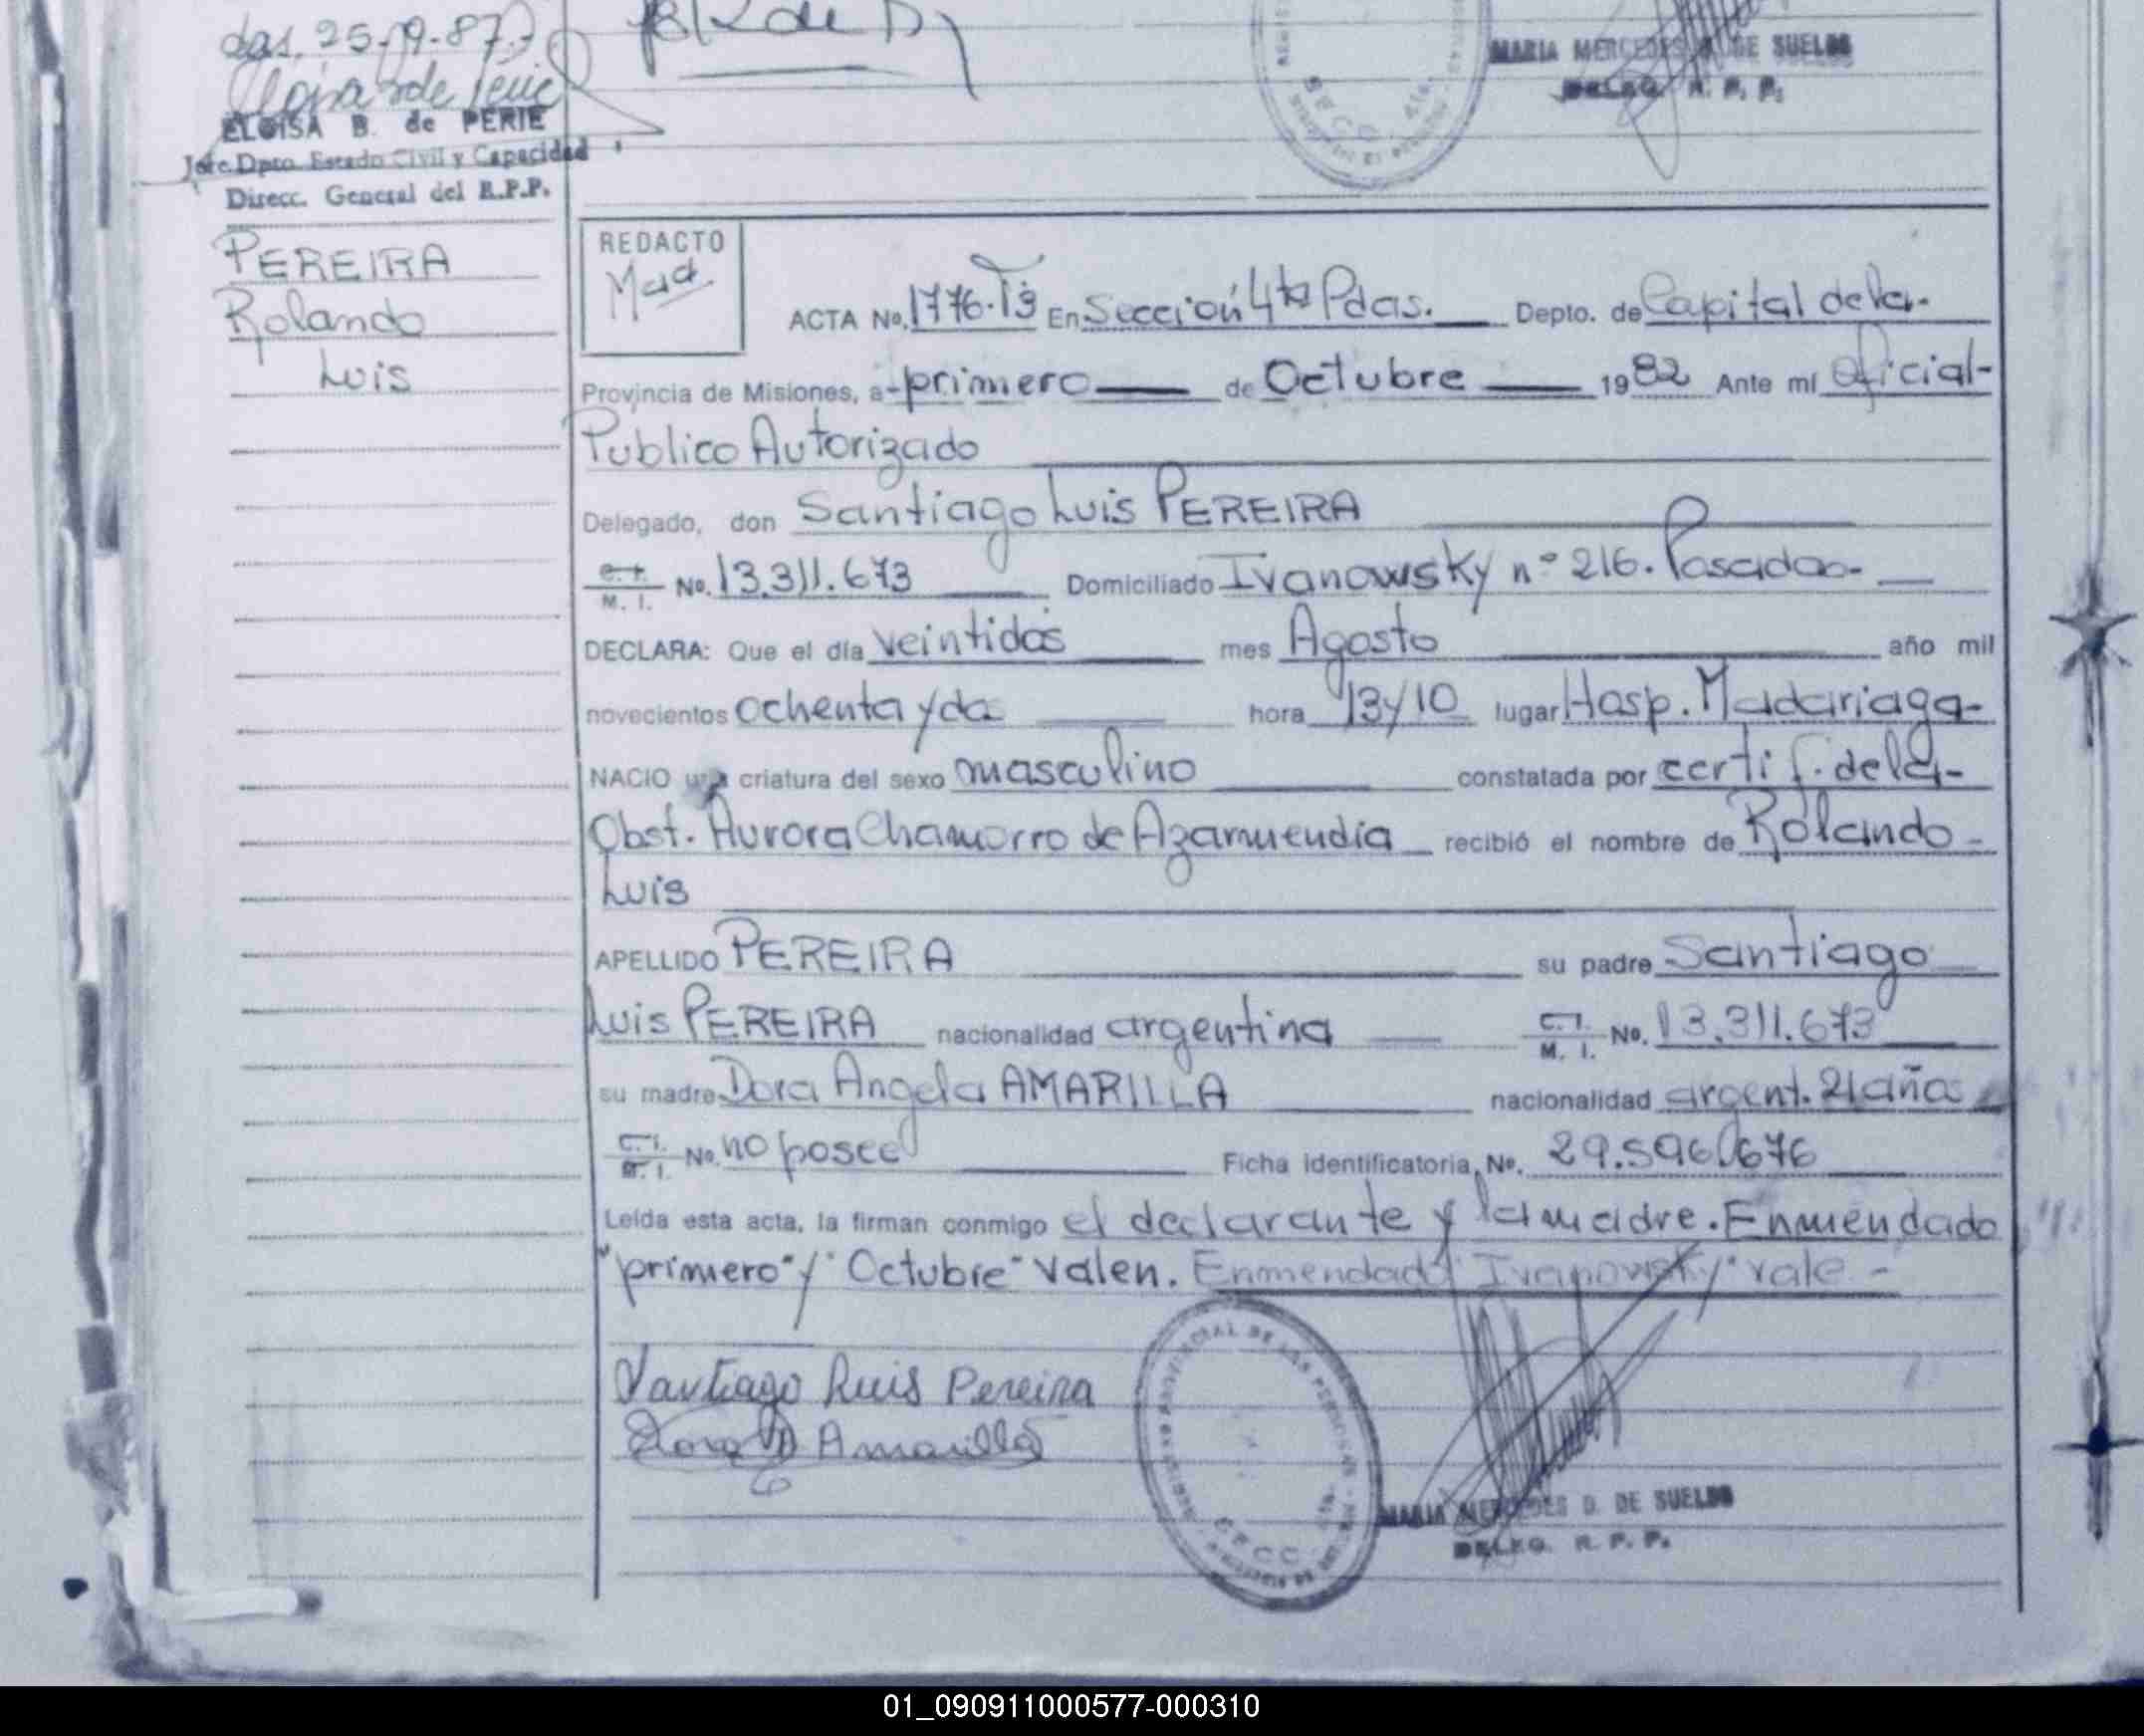 Pdas. 25-9-87.
ELOISA B. de PERIE
Jefe Dpto. Estado Civil y Capacidad
Direcc. General del R.P.P.
MARIA MERCEDES D. DE SUELDO
DELEG. R. P. P.
SECC 4ta.
PEREIRA
Rolando
Luis
REDACTO
ACTA No. 1776. Tº En Sección 4ta Pdas. Depto. de Capital de la-
Provincia de Misiones, a-primero de Octubre 1982 Ante mí Oficial-
Publico Autorizado
Delegado, don Santiago Luis PEREIRA
C. I.
M. I. No. 13.311.673 Domiciliado Ivanowsky nº 216. Posadas-
DECLARA: Que el día veintidos mes Agosto año mil
novecientos ochenta y dos hora 13y10 lugar Hosp. Madariaga-
NACIO una criatura del sexo masculino constatada por certif. de la-
Obst. Aurora Chamorro de Azarmendia recibió el nombre de Rolando-
Luis
APELLIDO PEREIRA su padre Santiago
Luis PEREIRA nacionalidad argentina C. I.
M. I. No. 13.311.673
su madre Dora Angela AMARILLA nacionalidad argent. 21 años
C. I.
M. I. No. no posee Ficha identificatoria, No. 29.596.676
Leída esta acta, la firman conmigo el declarante y la madre. Enmendado
"primero" y "Octubre" valen. Enmendado "Ivanowsky" vale.-
Santiago Luis Pereira
Dora A Amarilla
REGISTRO PROVINCIAL DE LAS PERSONAS
SECC
MARIA MERCEDES D. DE SUELDO
DELEG. R. P. P.
01_090911000577-000310